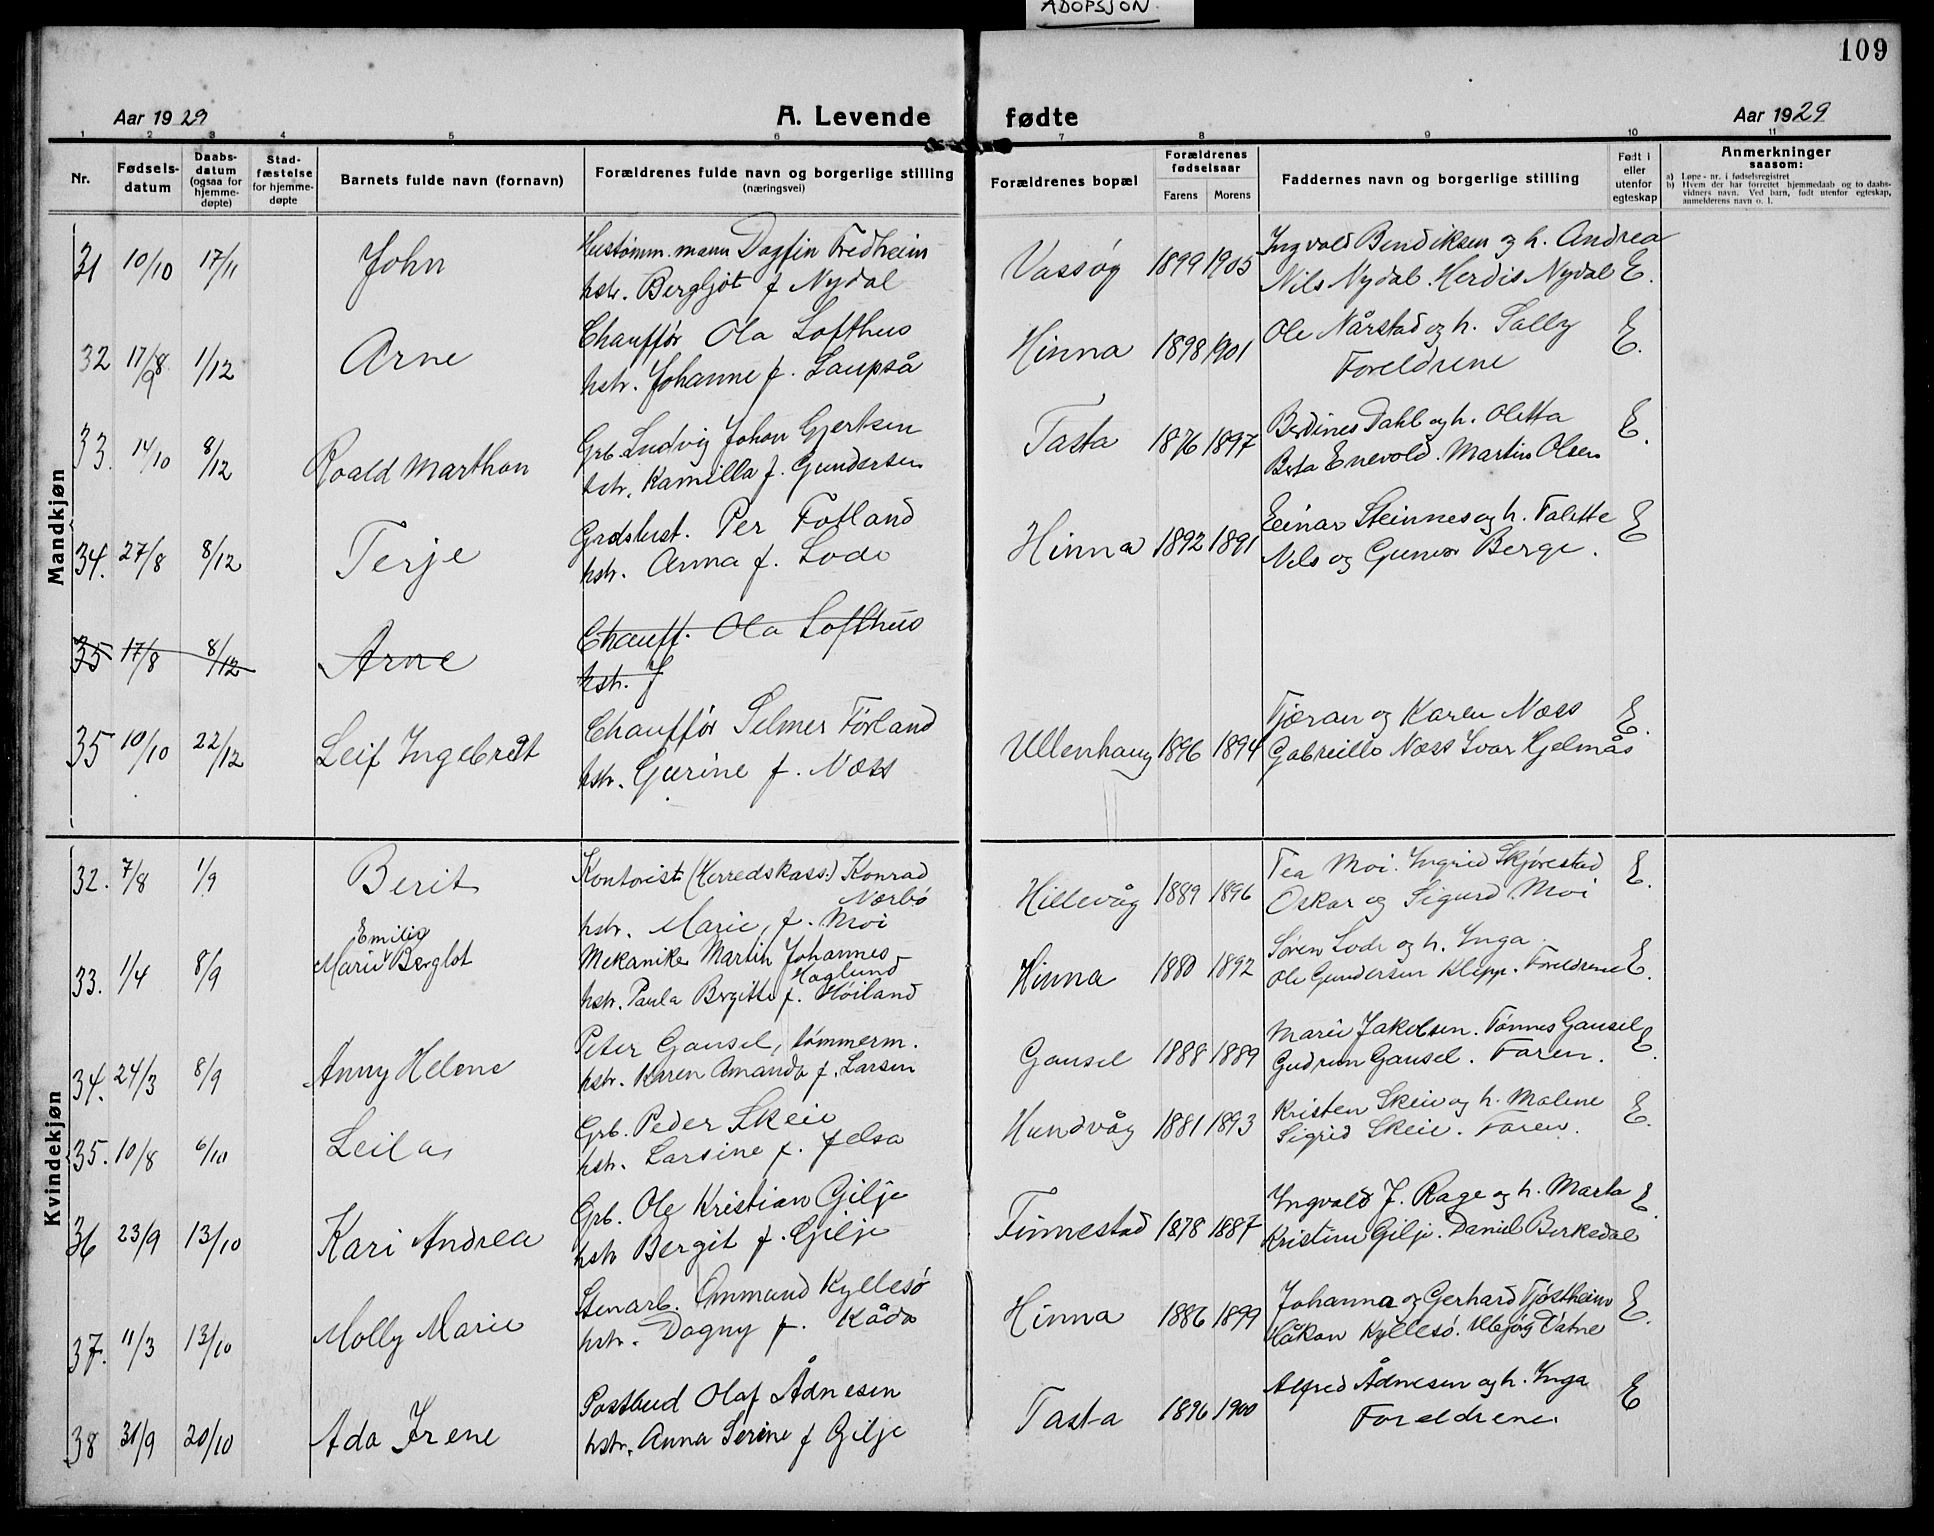 ADOPSJON.
109
Aar 1929 A. Levende fødte Aar 1929
1 2 3 4 5 6 7 8 9 10 11
Nr. Fødsels-datum Daabs-datum (ogsaa for hjemme-døpte) Stad-fæstelse for hjemme-døpte Barnets fulde navn (fornavn) Forældrenes fulde navn og borgerlige stilling (næringsvei) Forældrenes bopæl Forældrenes fødselsaar Farens Morens Faddernes navn og borgerlige stilling Født i eller utenfor egteskap Anmerkninger saasom:
a) Løpe-nr. i fødselsregistret
b) Hvem der har forrettet hjemmedaab og to daabs-
vidners navn. Ved barn, født utenfor egteskap,
anmelderens navn o. l.
Mandkjøn
31 10/10 17/11 John Hustømm.mann Dagfin Fredheim Vassøy 1899 1905 Ingvald Bendiksen og h. Andrea E.
hstr. Bergljot f Nydal Nils Nydal. Herdis Nydal
32 17/8 9 1/12 Arne Chauffør Ola Lofthus Hinna 1898 1901 Ole Nårstad og h. Sally E.
hstr. Johanne f. Laupså Foreldrene
33. 14/10 8/12 Roald Marthon Grb. Ludvig Johan Gjertsen Tasta 1876 1897 Berdines Dahl og h. Oletta E.
hstr. Kamilla f. Gundersen Berta Enevold. Martin Olsen
34. 27/8 8/12 Terje Grdsbest. Per Fotland Hinna 1892 1891 Einar Steinnes og h. Talette E
hstr. Anna f. Lode Nils og Gunvor Berge.
35 17/8 8/12 Arne Chauff. Ola Lofthus
hstr. J
35 10/10 22/12 Leif Ingebret Chauffør Selmer Førland Ullenhaug 1896 1894 Tjæran og Karen Næss E.
hstr. Gurine f. Næss Gabrielle Næss Ivar Hjelmås
Kvindekjøn
32. 7/8 1/9 Berit Kontorist (Herredskass.) Konrad Nærbø Hillevåg 1889 1896 Tea Moi. Ingrid Skjørestad E.
hstr. Marie, f. Moi Oskar og Sigurd Moi
33. 1/4 8/9 Marie Emilie Berglot Mekanike Martin Johannes Haglund Hinna 1880 1892 Søren Lode og h. Inga. E.
hstr. Paula Brgitte f. Høiland Ole Gundersen Klepp. Foreldrene
34. 24/3 8/9 Anny Helene Peter Gausel, tømmerm. Gausel 1888 1889 Marie Jakobsen. Tønnes Gausel E.
hstr. Karen Amanda f. Larsen Gudrun Gausel. Faren.
35. 10/8 6/10 Leila Grb. Peder Skeie Hundvåg 1881 1893 Kristen Skeie og h. Malene E.
hstr. Larsine f. Jelsa Sigrid Skeie. Faren.
36 23/9 13/10 Kari Andrea Grb. Ole Kristian Gilje Finnestad 1878 1887 Ingvald J. Rage og h. Marta E.
hstr Bergit f. Gilje Kristine Gilje. Daniel Berksdal
37. 11/3 13/10 Molly Marie Stenarb. Ommund Kyllesø Hinna 1886 1899 Johanna og Gerhard Tjøstheim E.
hstr. Dagny f. Kåda Håkon Kyllesø. Datne
38 30/9 20/10 Ada Irene Postbud Olaf Ådnesen Tasta 1896 1900 Alfred Ådnesen og h. Inga E
hstr. Anna Serine f Gilje Foreldrene.